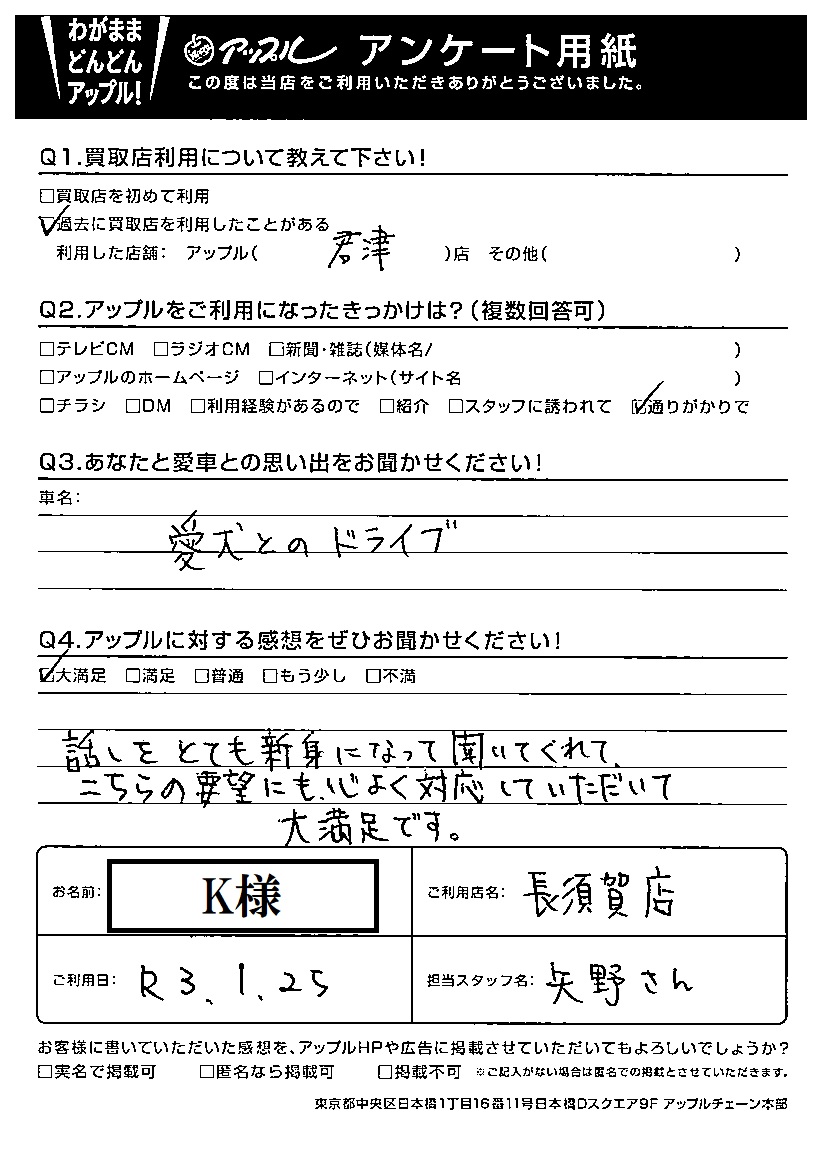 わがまま
どんどん
アップル!
アップル アンケート用紙
この度は当店をご利用いただきありがとうございました。
Q1.買取店利用について教えて下さい!
□買取店を初めて利用
☑過去に買取店を利用したことがある
利用した店舗: アップル( 君津 )店 その他( )
Q2.アップルをご利用になったきっかけは?(複数回答可)
□テレビCM □ラジオCM □新聞・雑誌(媒体名/ )
□アップルのホームページ □インターネット(サイト名 )
□チラシ □DM □利用経験があるので □紹介 □スタッフに誘われて ☑通りがかりで
Q3.あなたと愛車との思い出をお聞かせください!
車名:
愛犬とのドライブ
Q4.アップルに対する感想をぜひお聞かせください!
☑大満足 □満足 □普通 □もう少し □不満
話しをとても新身になって聞いてくれて、
こちらの要望にも、心よく対応していただいて
大満足です。
お名前: K様 ご利用店名: 長須賀店
ご利用日: R3.1.25 担当スタッフ名: 矢野さん
お客様に書いていただいた感想を、アップルHPや広告に掲載させていただいてもよろしいでしょうか?
□実名で掲載可 □匿名なら掲載可 □掲載不可 ※ご記入がない場合は匿名での掲載とさせていただきます。
東京都中央区日本橋1丁目16番11号日本橋Dスクエア9F アップルチェーン本部